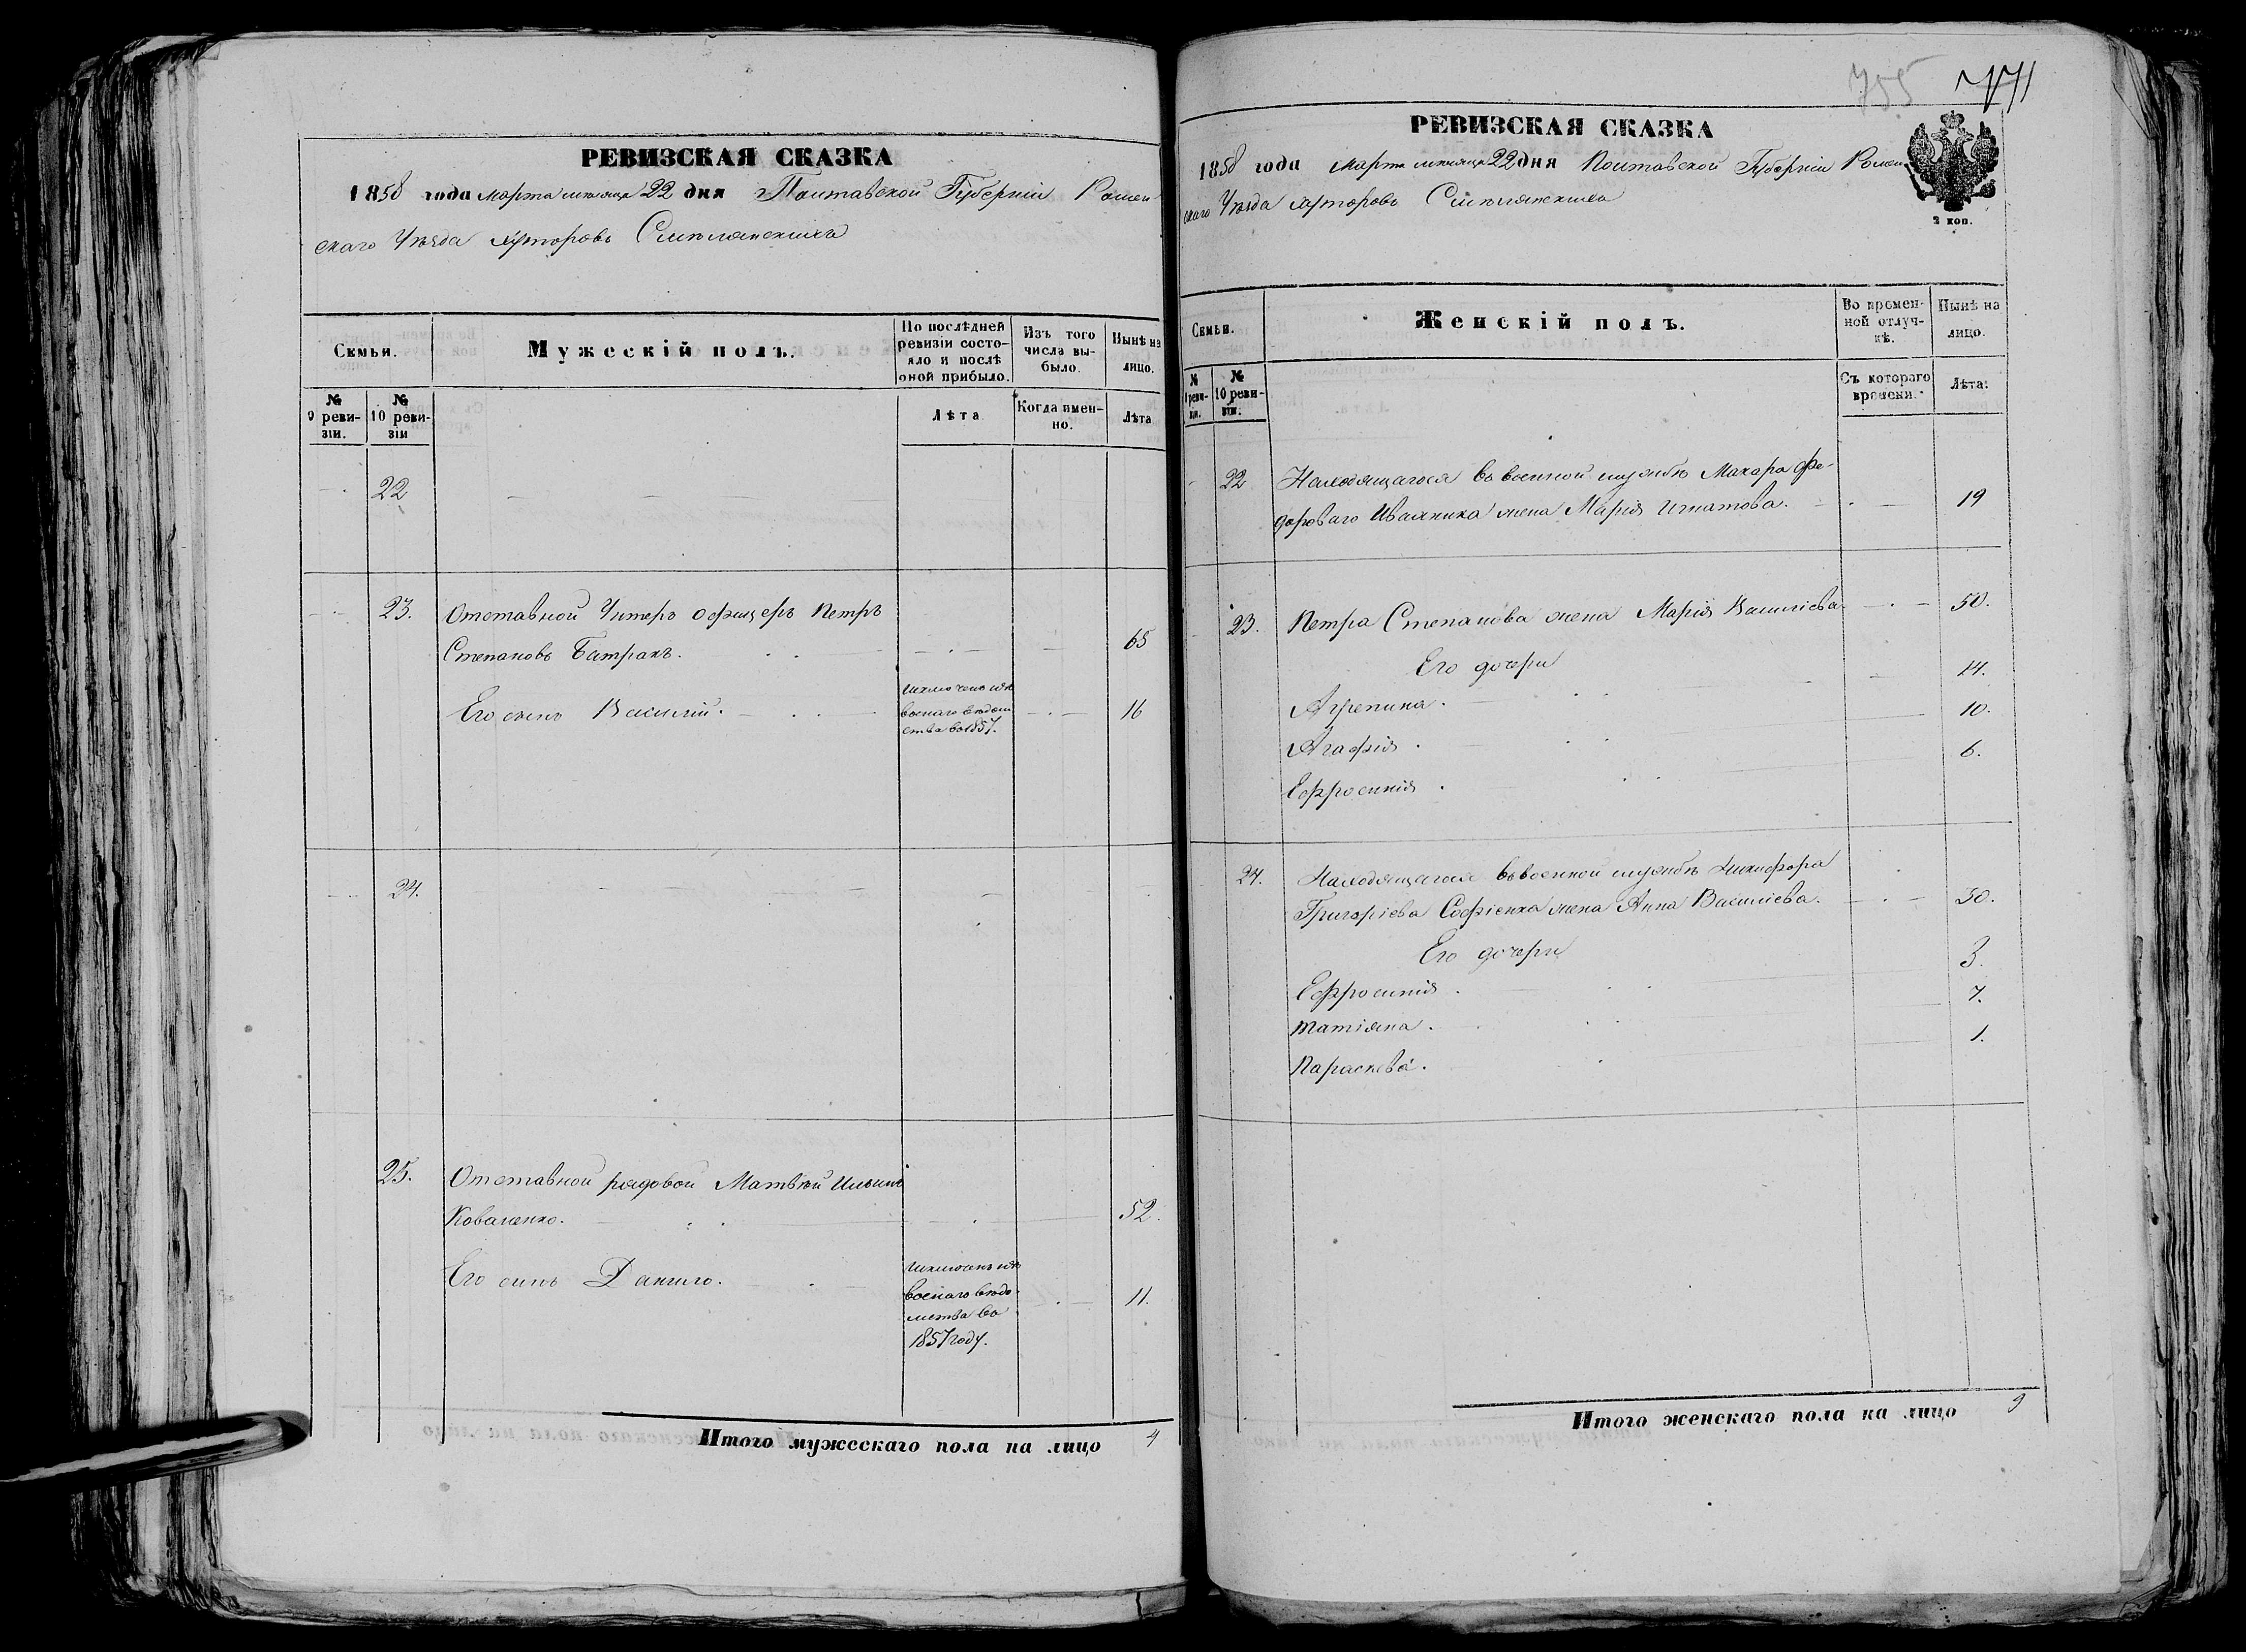 РЕВИЗСКАЯ СКАЗКА
1858 года марта месяца 22 дня Полтавской Губерніи Ромен
скаго Уѣзда хуторовъ Смѣлянскихъ
Семьи.
Мужескій полъ.
По послѣдней ревизіи состояло и послѣ оной прибыло.
Изъ того числа выбыло.
Нынѣ на лицо.
№ 9 ревизіи.
№ 10 ревизіи
Лѣта
Когда именно.
Лѣта
22
23. Отставной Унтеръ офицеръ Петръ
Степановъ Батракъ. 65
Его сынъ Василій. исключенъ изъ
военаго вѣдом
ства въ 1857. 16
24.
25. Отставной рядовой Матвѣй Ильинъ
Коваленко. 52.
Его сынъ Данило. исключенъ изъ
военаго вѣдо
мства въ
1857 году. 11.
Итого мужескаго пола на лицо 4
755 771
РЕВИЗСКАЯ СКАЗКА
1858 года марта месяца 22 дня Полтавской Губерніи Ромен
скаго Уѣзда хуторовъ Смѣлянскихъ
2 коп.
Семьи.
Женскій полъ.
Во времен-
ной отлуч-
кѣ.
Нынѣ на
лицо.
№ 9 ревизіи.
№ 10 ревизіи.
Съ котораго
времени.
Лѣта.
22 Находящагося въ военной службѣ Макара Фе-
дорова Ивахника жена Марія Игнатова. 19
23. Петра Степанова жена Марія Василіева 50.
Его дочери
Агрепина. 14.
Агафія. 10.
Ефросинія. 6.
24. Находящагося въ военной службѣ Никифора
Григоріева Софіенка жена Анна Василіева. 30.
Его дочери
Ефросинія. 3.
Татіяна. 7.
Параскева. 1.
Итого женскаго пола на лицо 9